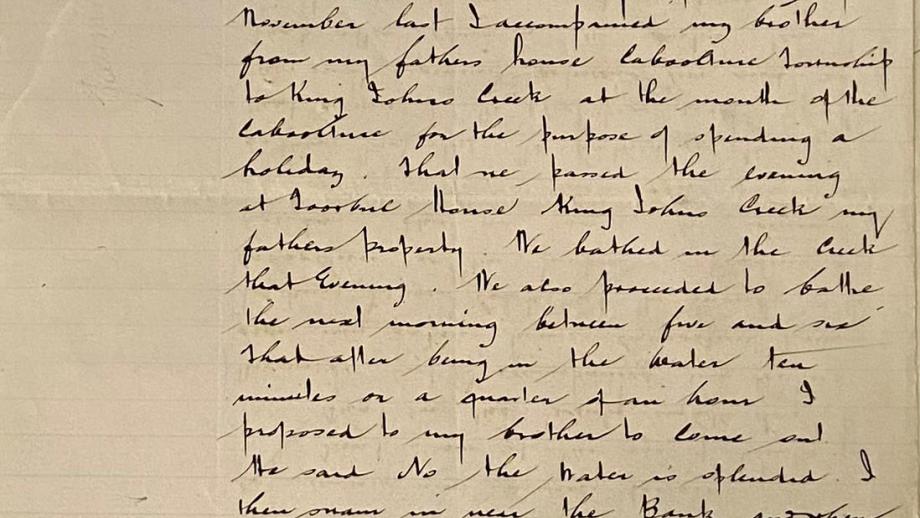 November last I accompanied my brother
from my fathers house Caboolture Township
to King Johns Creek at the mouth of the
Caboolture for the purpose of spending a
holiday. That we passed the evening
at Toorbul House King Johns Creek my
fathers property. We bathed in the Creek
that Evening. We also proceeded to bathe
the next morning between five and six
that after being in the water ten
minutes or a quarter of an hour I
proposed to my brother to come out
He said No the water is splendid. I
then swam in near the Bank and then